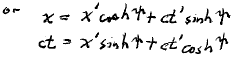 or x = x' cosh ψ + ct' sinh ψ
ct = x' sinh ψ + ct' cosh ψ